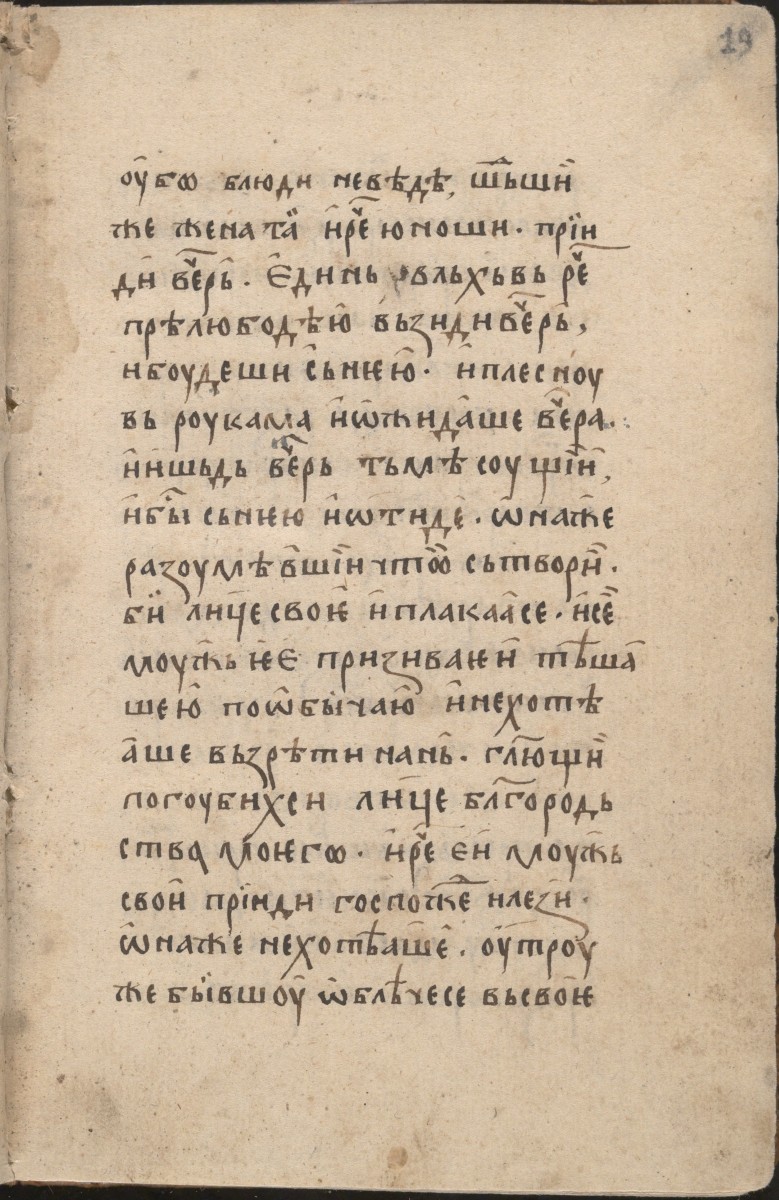 19
ѹ҆бѡ блюди невѣдѣ, ѿьшїи
же жена та̀ и҆рⷱ҇е юноши · прїи
дѝ веⷱ҇рь · Е҆динь вльхьвь рⷱ҇е
прѣлюбодѣю̀ вьзиди веⷱ҇рь,
и боудеши сь нкю̀ · и҆ плесноу
вь роукама и҆ ѡ҆жида̀ше веⷱ҇ра ·
и҆ ишьдь веⷱ҇рь тьмѣ соущїи,
и҆ бы̀ сь нѥю и҆ ѡ҆тидѐ · ѡ҆на же
разоумѣвшїи что̀ сьтвори̑ ·
бѝ лице своѥ и҆ плакаа̀се · и҆ се̑
моужь ѥѥ призиваѥи тѣша
ше ю̀ по ѡ҆бычаю̀ и҆ не хотѣ
а҆ше вьзрѣти на нь̀ · гл҃ющи
погоубих си лице бл҃городь
ства моѥгѡ · и҆рⷱ҇е ѥи моужь
свои прїиди госпожⷣе и лези ·
ѡ҆на же не хотѣаше · ѹ҆троу
же бывшоу ѡ҆блѣче се вь своѥ